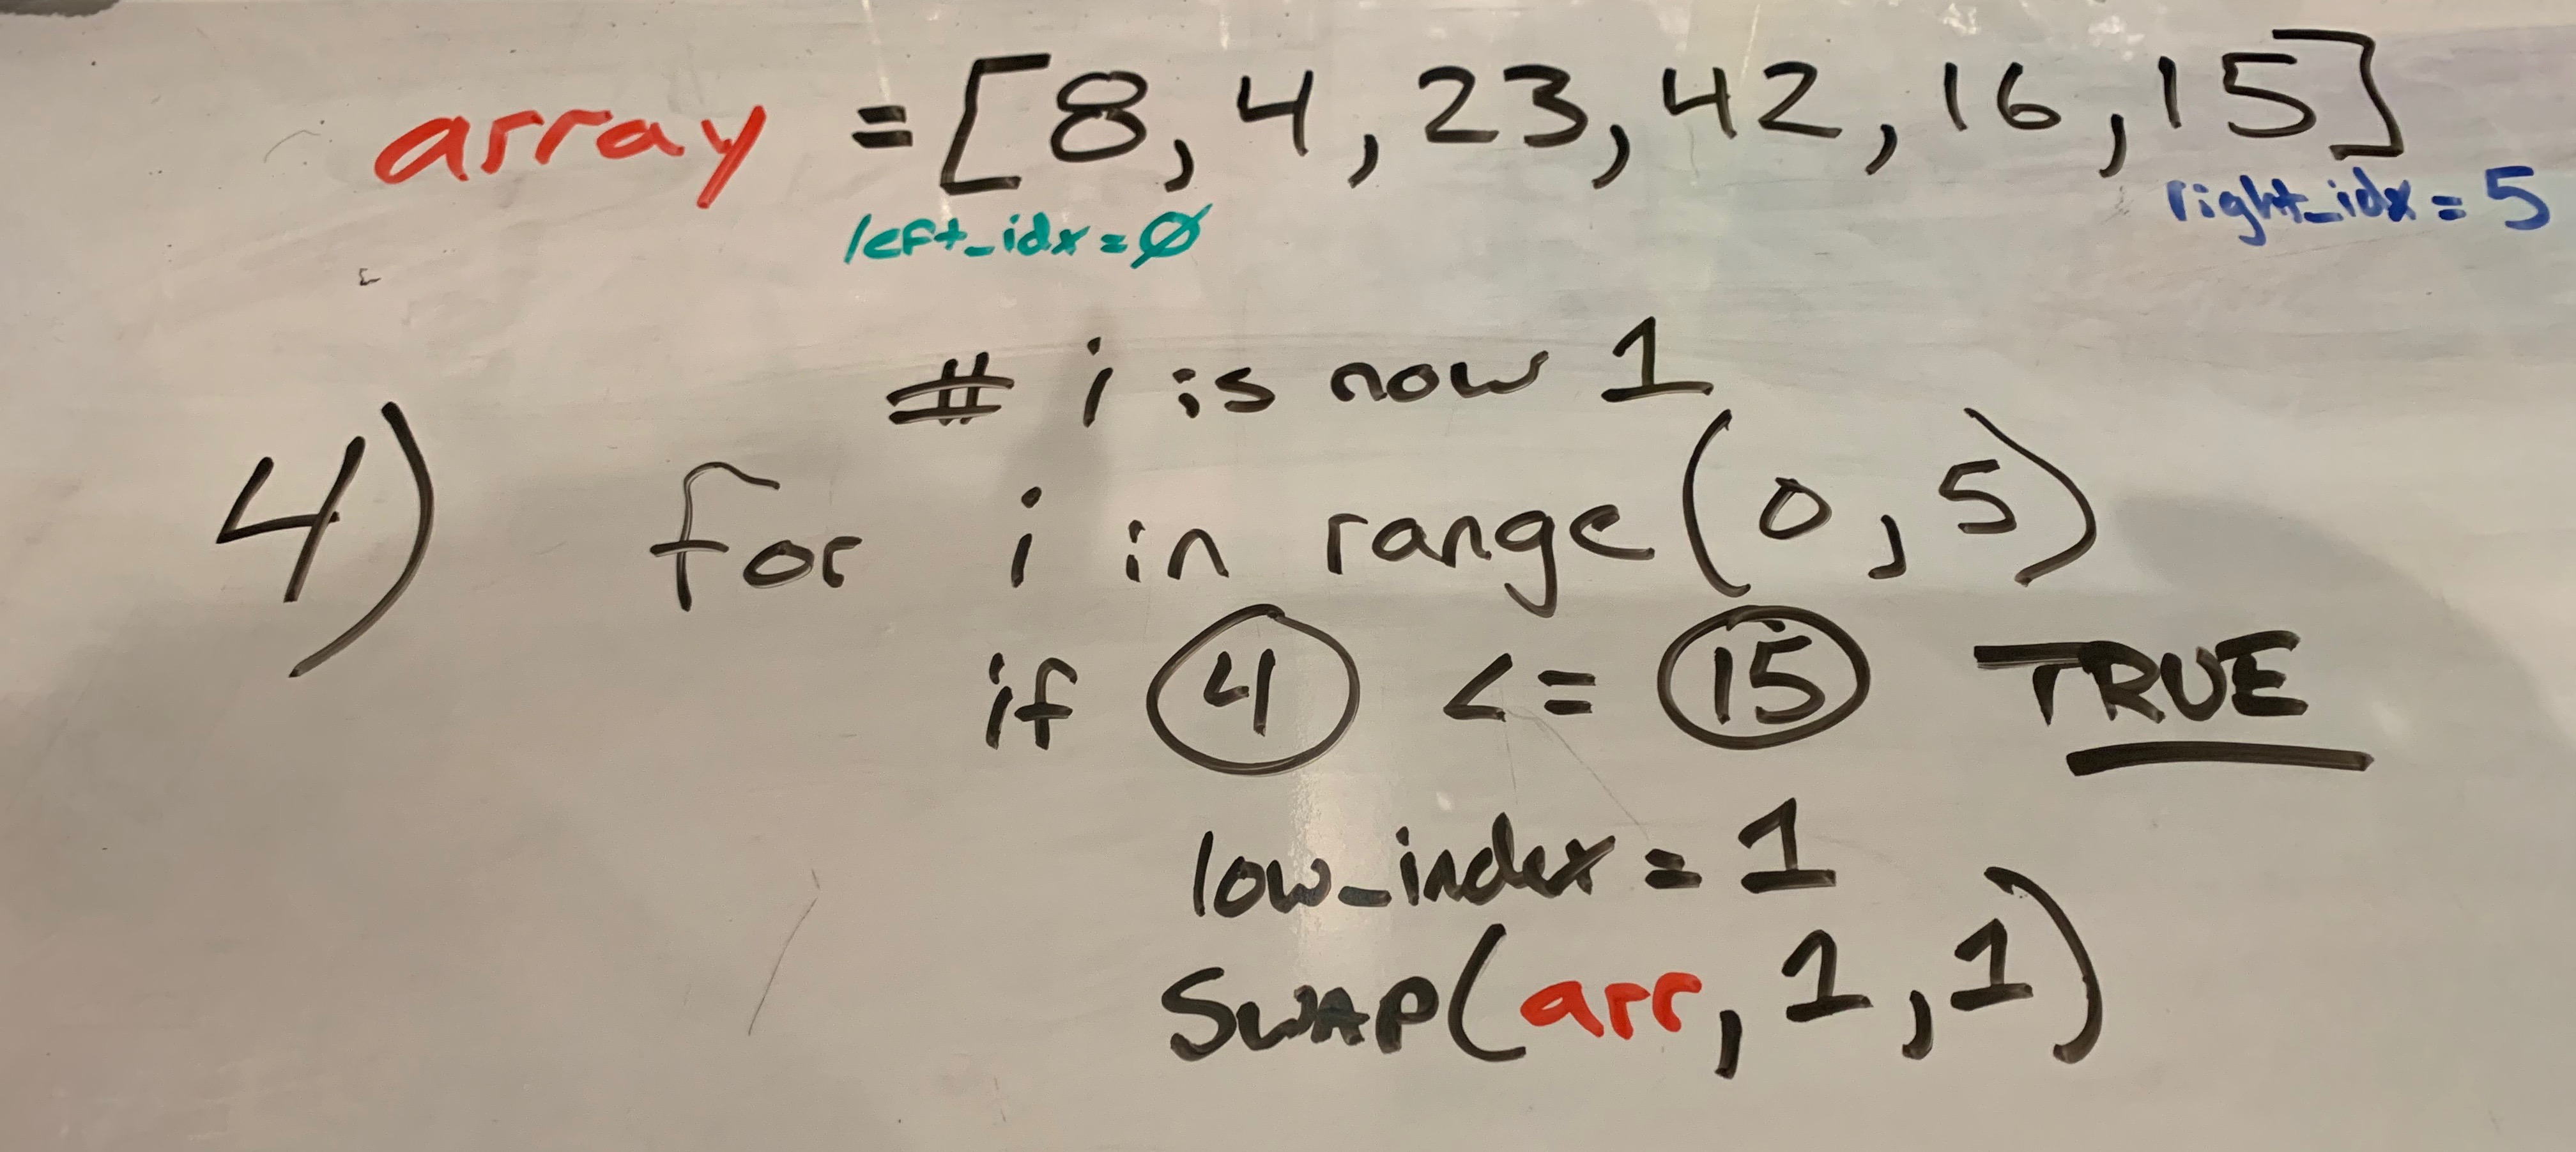 array = [8, 4, 23, 42, 16, 15]
left_idx = Ø right_idx = 5
# i is now 1
4) for i in range(0, 5)
if 4 <= 15 TRUE
low_index = 1
SWAP(arr, 1, 1)